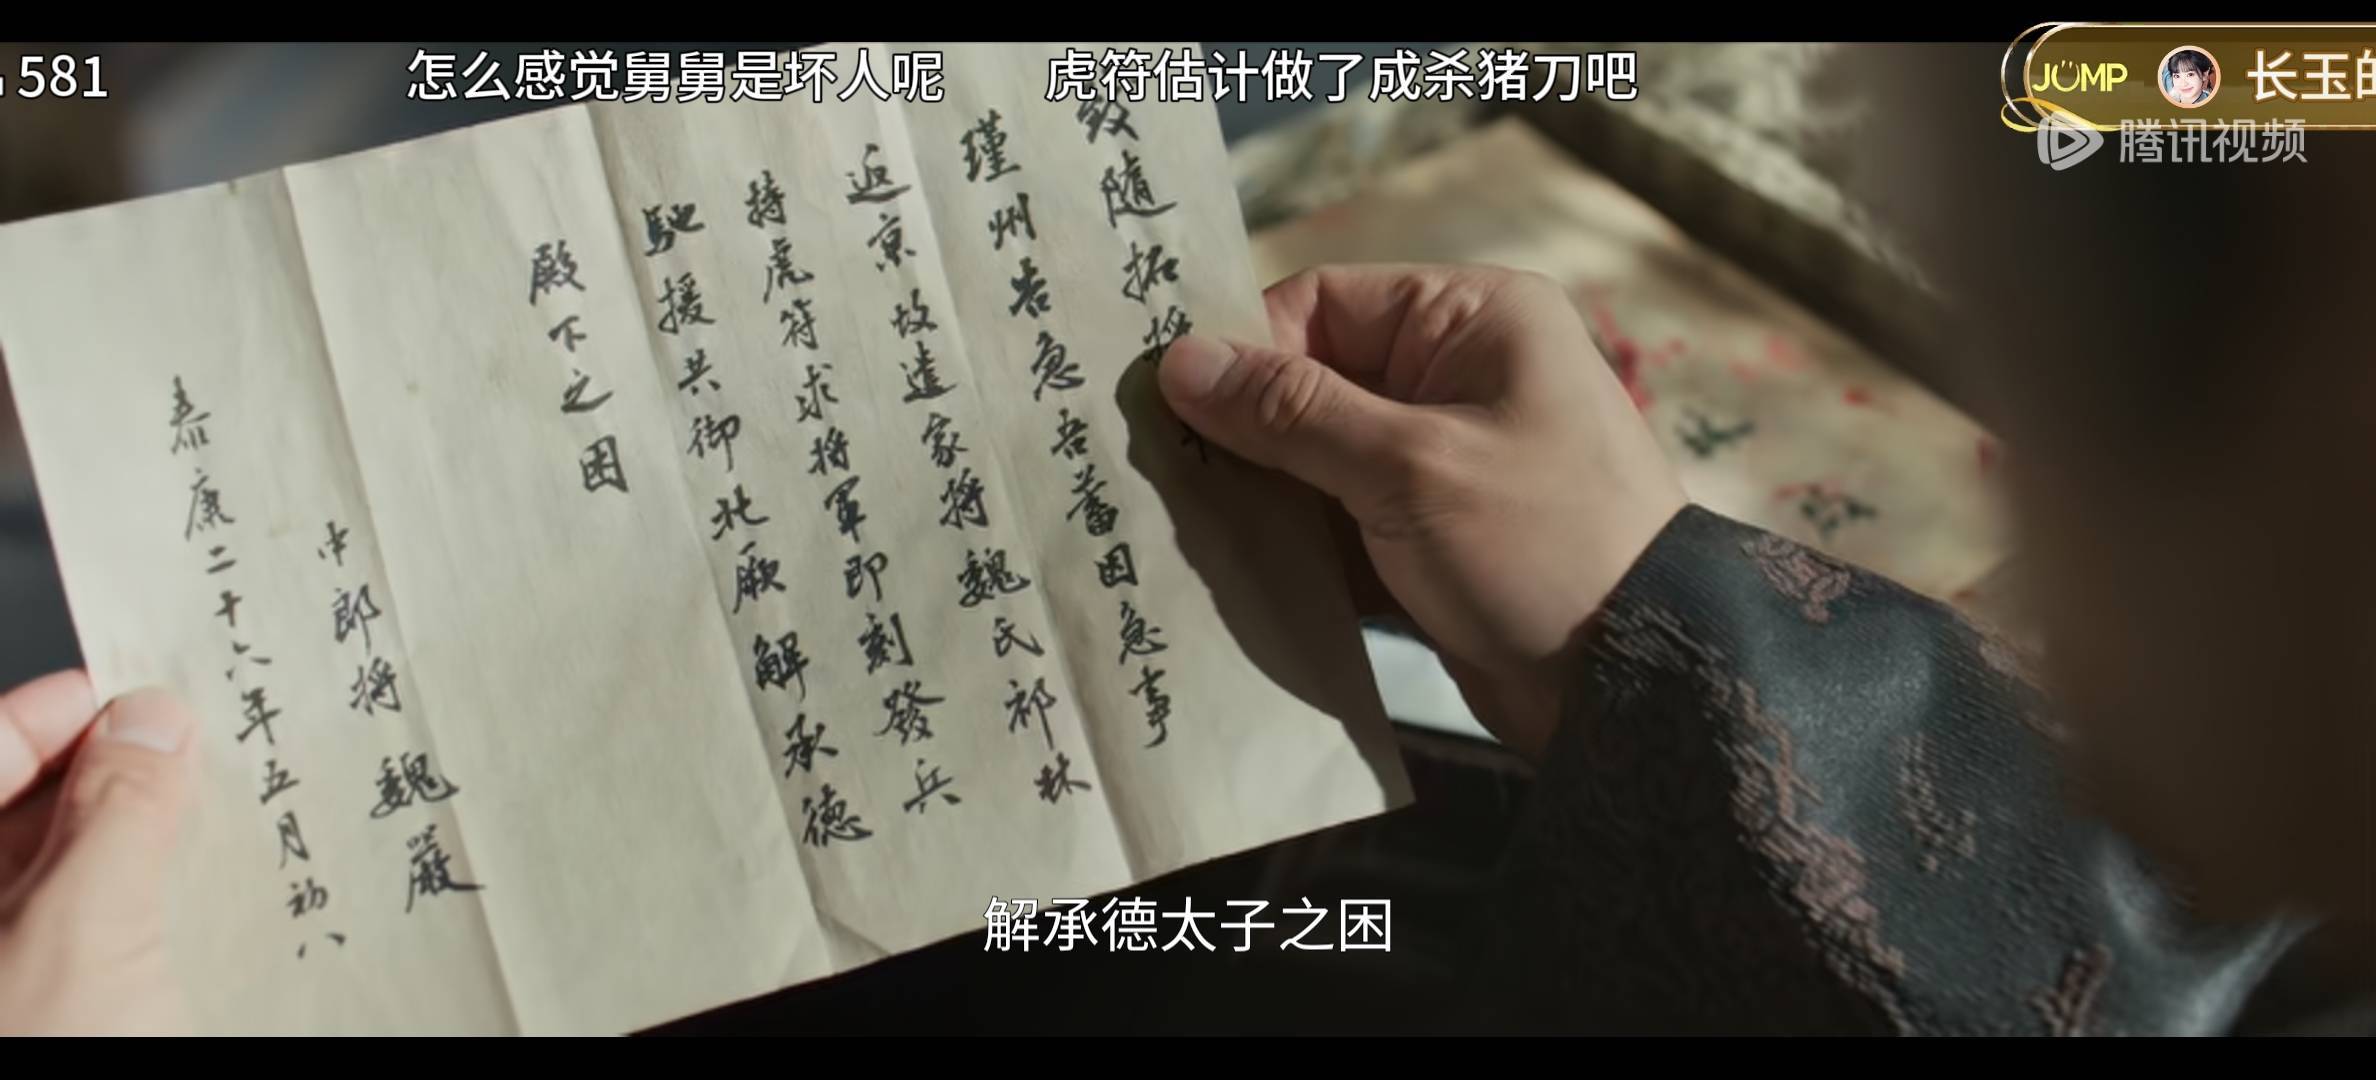 581
怎么感觉舅舅是坏人呢
虎符估计做了成杀猪刀吧
JUMP
长玉的
腾讯视频
致随拓将
瑾州告急吾蓄因急事
返京故遣家将魏氏祁林
持虎符求将軍即刻發兵
馳援共御北厥解承德
殿下之困
中郎将魏嚴
泰康二十六年五月初八
解承德太子之困